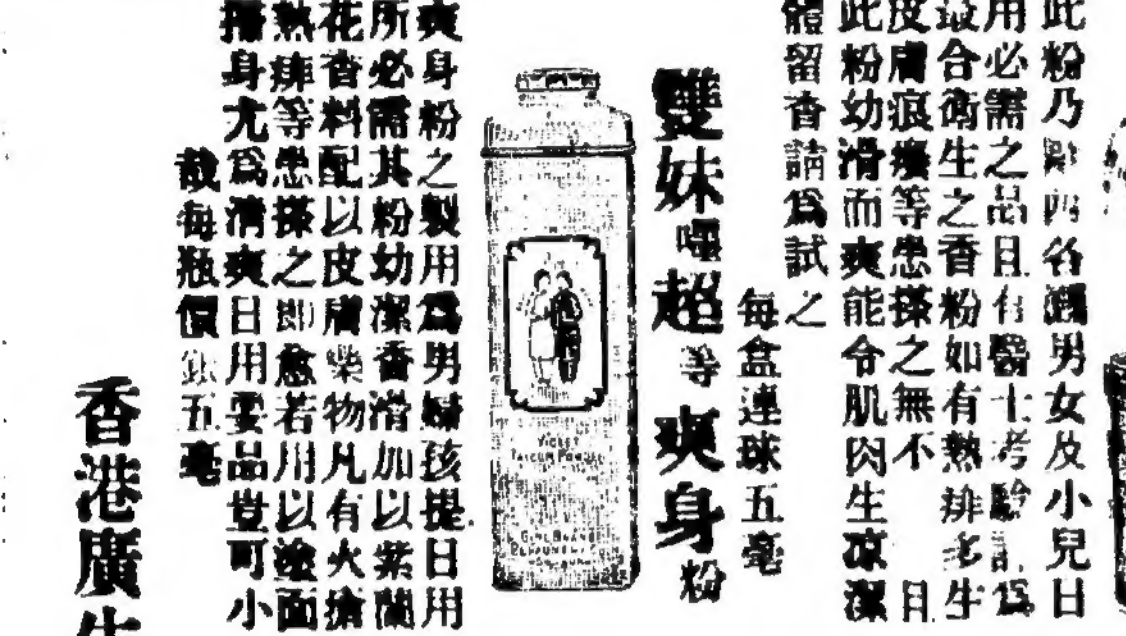 此粉乃各男女及小兒日
用必需之品且有醫士考驗為
最合衛生之香粉如有熱痱多生
皮膚痕癢等患搽之無不
此粉幼滑而爽能令肌肉生凉潔
體留香請為試之
每盒連球五毫
雙妹嚜超等爽身粉
VIOLET
TALCUM POWDER
GIRL BRAND
爽身粉之製用為男婦孩提日用
所必需其粉幼潔香滑加以紫蘭
花香料配以皮膚樂物凡有火瘡
熱痱等患搽之即愈若用以塗面
身尤為清爽日用要品豈可小
哉每瓶價銀五毫
香港廣生